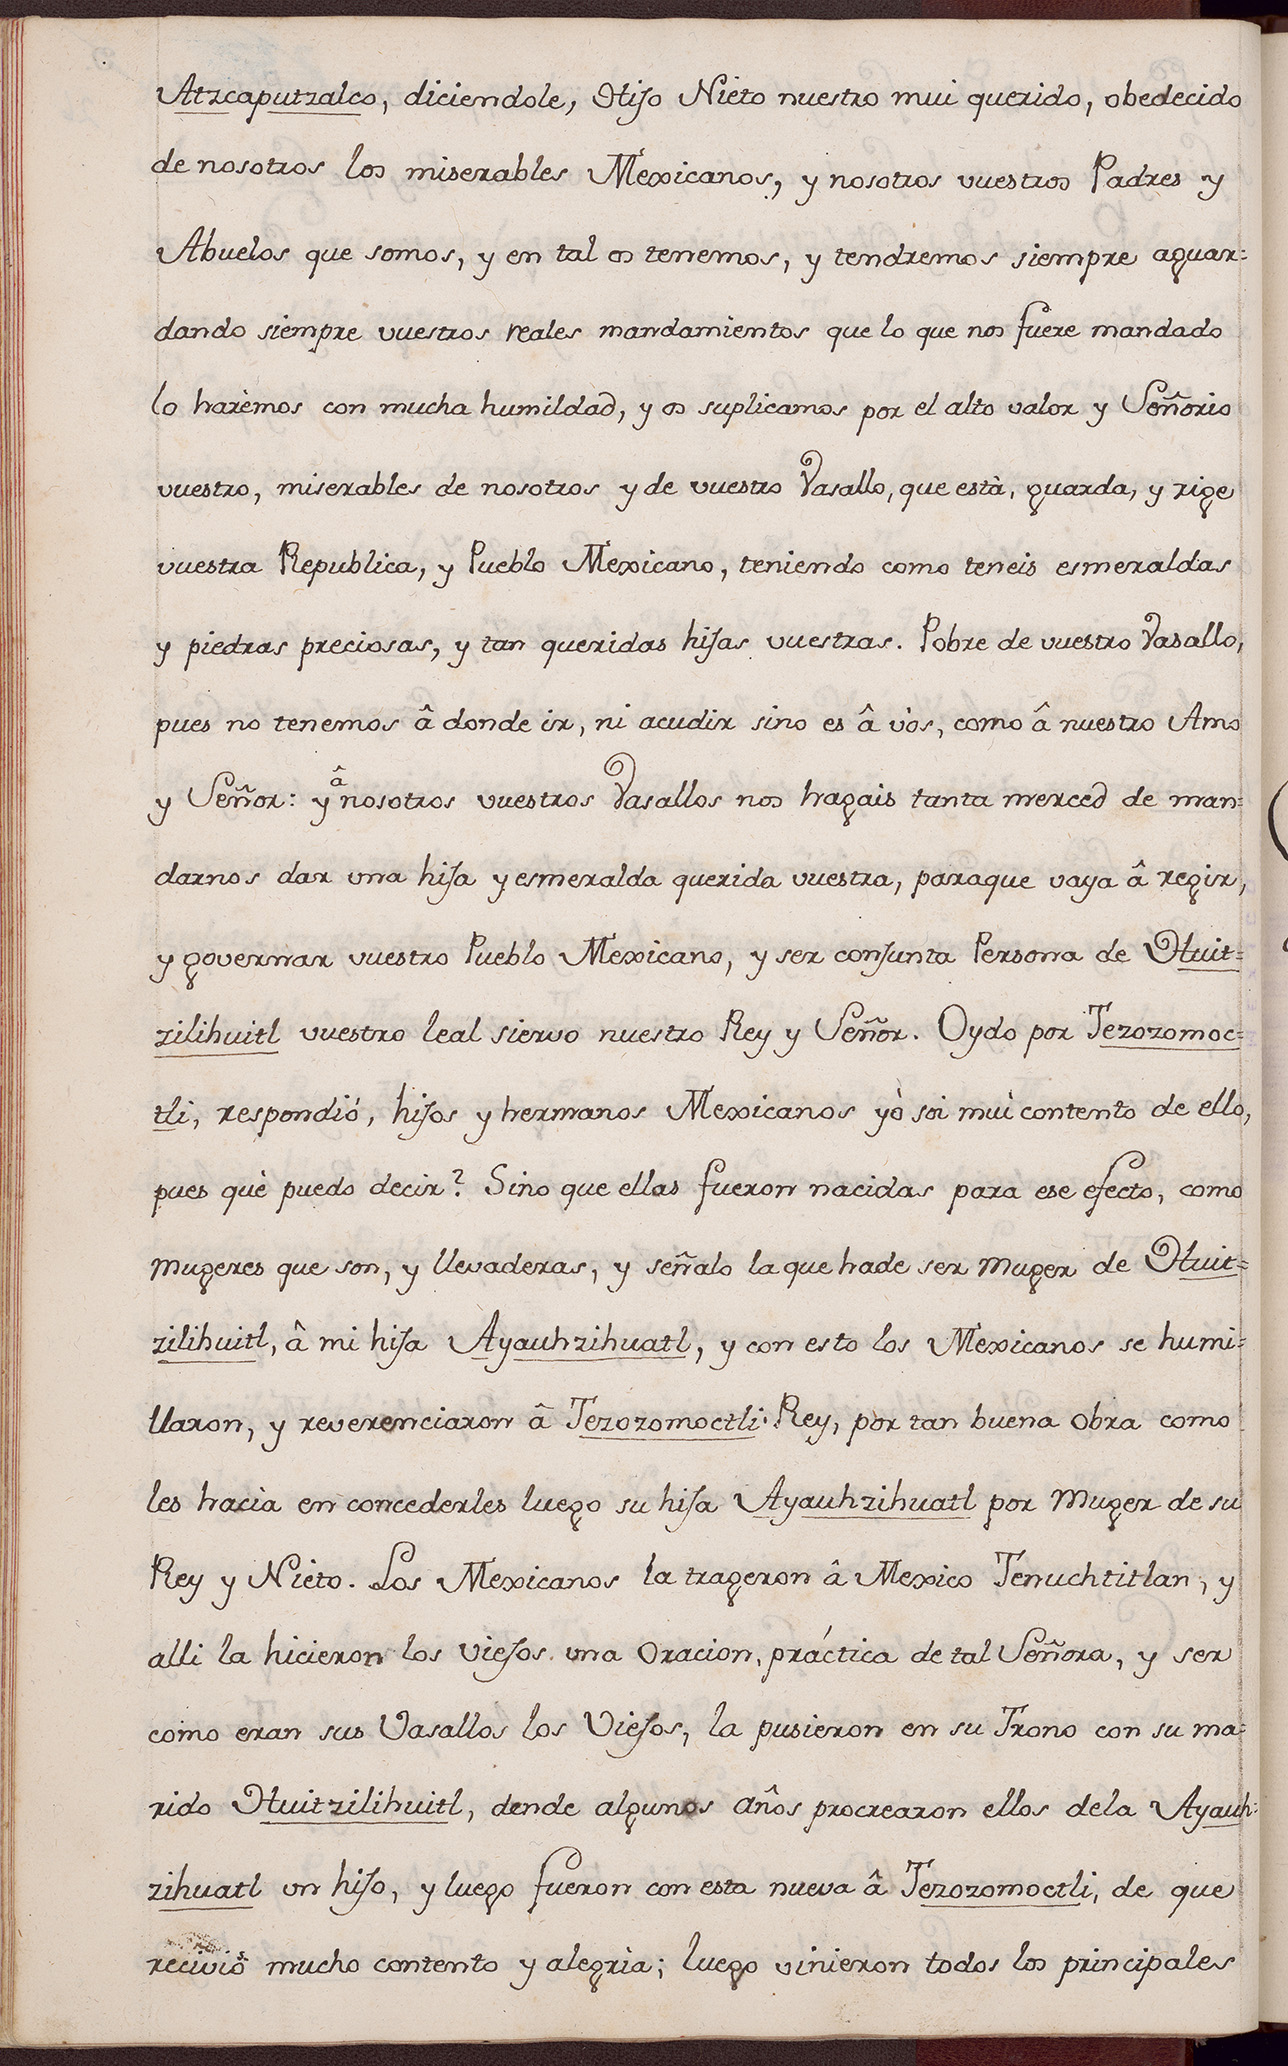 Atzcaputzalco, diciendole, Hijo Nieto nuestro mui querido, obedecido
de nosotros los miserables Mexicanos, y nosotros vuestros Padres y
Abuelos que somos, y en tal os tenemos, y tendremos siempre aguar=
dando siempre vuestros reales mandamientos que lo que nos fuere mandado
lo harèmos con mucha humildad, y os suplicamos por el alto valor y Señorio
vuestro, miserables de nosotros y de vuestro Vasallo, que està, guarda, y rige
vuestra Republica, y Pueblo Mexicano, teniendo como teneis esmeraldas
y piedras preciosas, y tan queridas hijas vuestras. Pobre de vuestro Vasallo,
pues no tenemos â donde ir, ni acudir sino es â vòs, como â nuestro Amo
y Señor: y â nosotros vuestros Vasallos nos hagais tanta merced de man=
darnos dar una hija y esmeralda querida vuestra, paraque vaya â regir,
y governar vuestro Pueblo Mexicano, y ser conjunta Persona de Huit=
zilihuitl vuestro leal siervo nuestro Rey y Señor. Oydo por Tezozomoc=
tli, respondió, hijos y hermanos Mexicanos yò soi muì contento de ello,
pues què puedo decir? Sino que ellas fueron nacidas para ese efecto, como
mugeres que son, y llevaderas, y señalo la que hade ser muger de Huit=
zilihuitl, â mi hija Ayauhzihuatl, y con esto los Mexicanos se humi=
llaron, y reverenciaron â Tezozomoctli Rey, por tan buena obra como
les hacìa en concederles luego su hija Ayauhzihuatl por muger de su
Rey y Nieto. Los Mexicanos la trageron â Mexico Tenuchtitlan, y
alli la hicieron los viejos una oracion, práctica de tal Señora, y ser
como eran sus Vasallos los Viejos, la pusieron en su Trono con su ma=
rido Huitzilihuitl, dende algunos años procrearon ellos dela Ayauh=
zihuatl un hijo, y luego fueron con esta nueva â Tezozomoctli, de que
recivió mucho contento y alegrìa; luego vinieron todos los principales